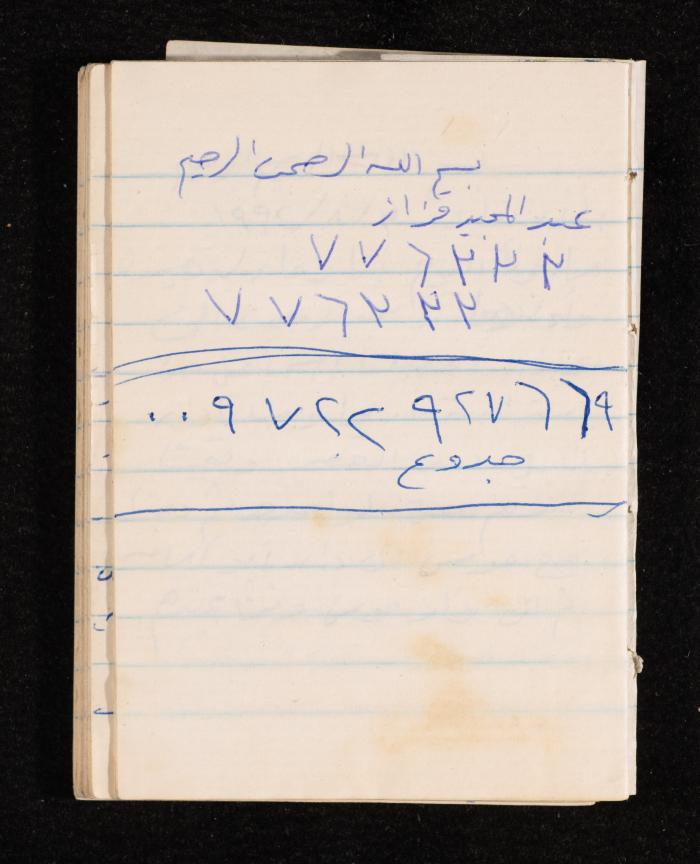 بسم الله الرحمن الرحيم
عبد المجيد قزاز
٧٧٦٣٣٣
٧٧٦٣٣٣
٠٠٩٧٢٢٩٢٧٦٦٩
جدوع